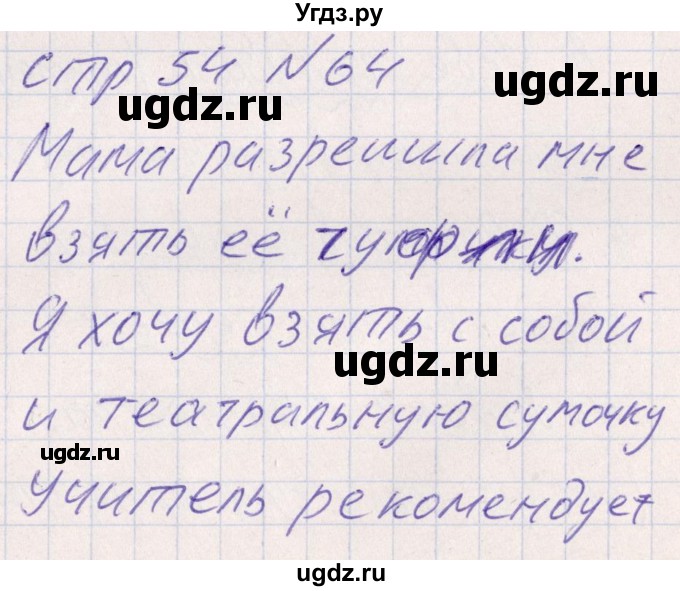 Угдз.ру
стр 54 №64
ugdz.ru
ugdz.ru
Мама разрешила мне
взять её
Я хочу взять с собой
ugdz.ru
и театральную сумочку
ugdz.ru
Учитель рекомендует
ugdz.ru